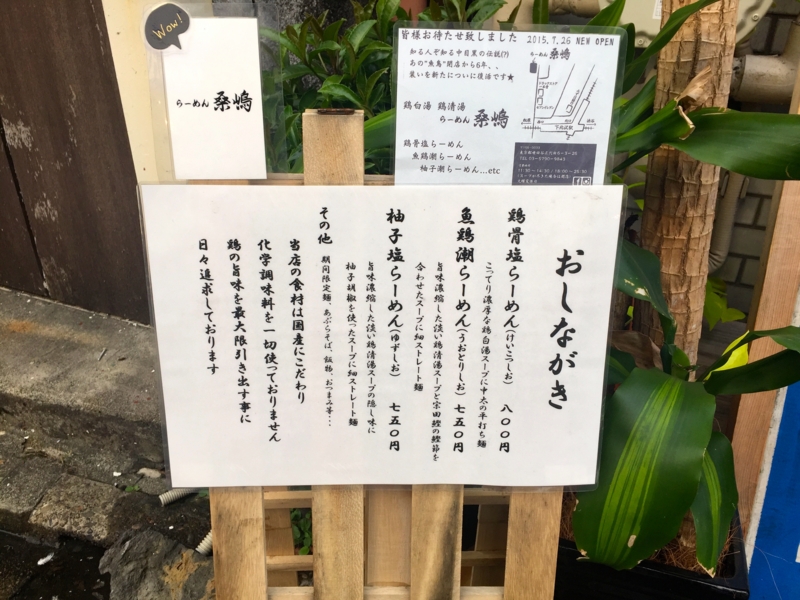 Wow!
らーめん 桑嶋
皆様お待たせ致しました
2015.7.26 NEW OPEN
知る人ぞ知る中目黒の伝説(?)
あの"魚鳥"閉店から6年、、
装いを新たについに復活です★
らーめん 桑嶋
鶏白湯 鶏清湯
らーめん 桑嶋
鶏骨塩らーめん
魚鶏潮らーめん
柚子潮らーめん...etc
おしながき
鶏骨塩らーめん(けいこつしお) 八〇〇円
こってり濃厚な鶏白湯スープに中太の平打ち麺
魚鶏潮らーめん(うおとりしお) 七五〇円
旨味濃縮した淡い鶏清湯スープと宗田鰹の鰹節を
合わせたスープに細ストレート麺
柚子塩らーめん(ゆずしお) 七五〇円
旨味濃縮した淡い鶏清湯スープの隠し味に
柚子胡椒を使ったスープに細ストレート麺
その他 期間限定麺、あぶらそば、飯物、おつまみ等・・・
当店の食材は国産にこだわり
化学調味料を一切使っておりません
鶏の旨味を最大限引き出す事に
日々追求しております